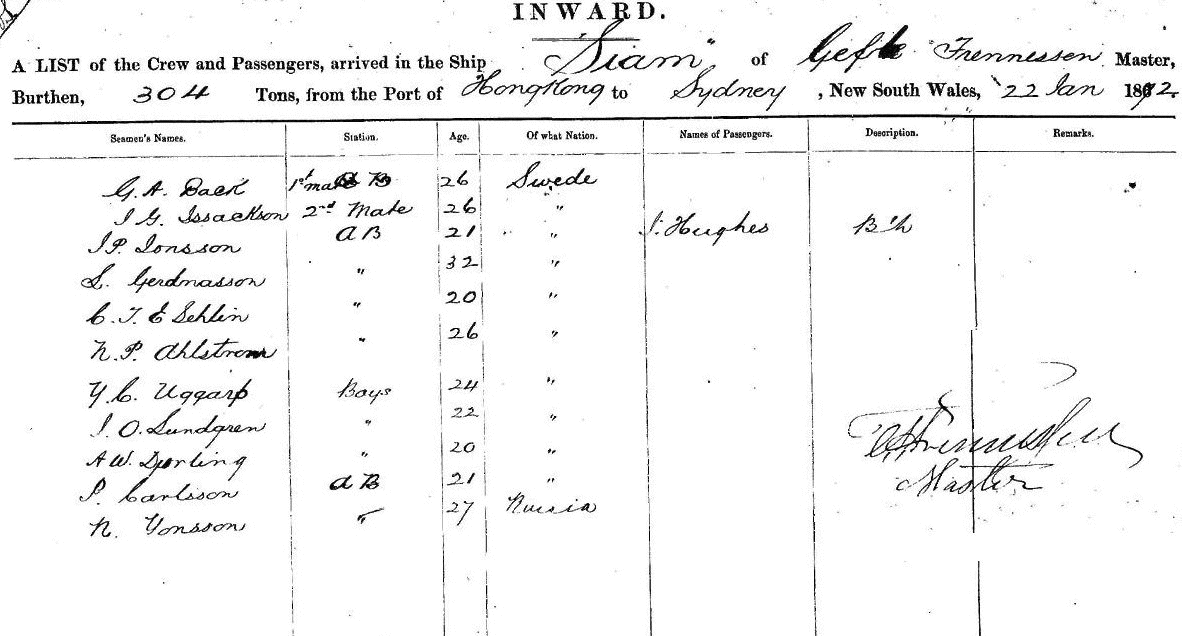 INWARD.
A LIST of the Crew and Passengers, arrived in the Ship "Siam" of Gefle Trennessen Master,
Burthen, 304 Tons, from the Port of HongKong to Sydney, New South Wales, 22 Jan 1872.
Seamen's Names. Station. Age. Of what Nation. Names of Passengers. Description. Remarks.
G. A. Back 1st mate 26 Swede
I G. Issackson 2nd Mate 26 "
I P. Ionsson A B 21 " J. Hughes B'h
L. Gerdmasson " 32 "
C. T. E Sehlin " 20 "
N. P. Ahlstrom " 26 "
Y. C. Uggarp Boys 24 "
I. O. Lundgren " 22 "
A W. Dyrling " 20 "
P. Carlsson A B 21 "
N. Yonsson " 27 Russia
Master